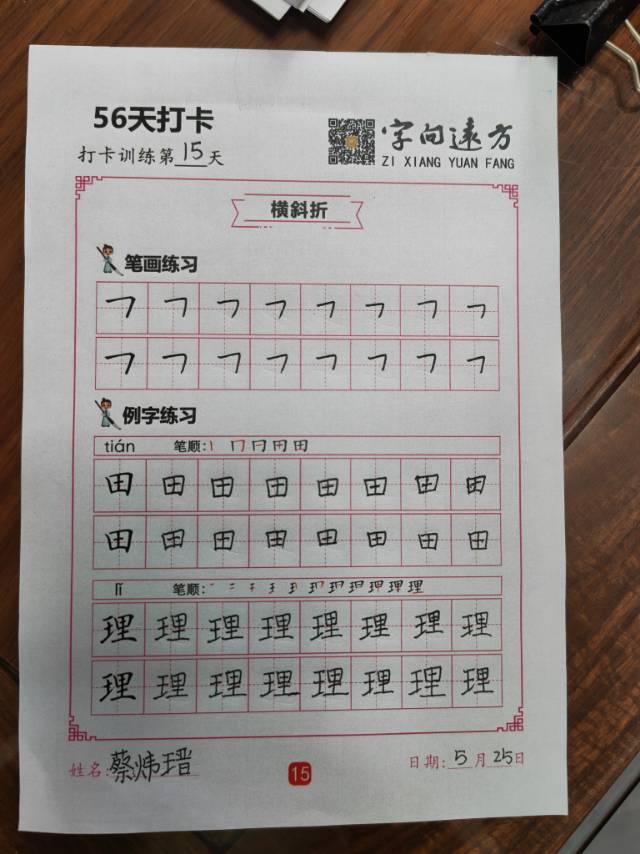 56天打卡
打卡训练第15天
字向远方
ZI XIANG YUAN FANG
横斜折
笔画练习
㇇ ㇇ ㇇ ㇇ ㇇ ㇇ ㇇ ㇇
㇇ ㇇ ㇇ ㇇ ㇇ ㇇ ㇇ ㇇
例字练习
tián 笔顺:
田 田 田 田 田 田 田 田
田 田 田 田 田 田 田 田
lǐ 笔顺:
理 理 理 理 理 理 理 理
理 理 理 理 理 理 理 理
姓名:蔡炜瑨
15
日期:5月25日